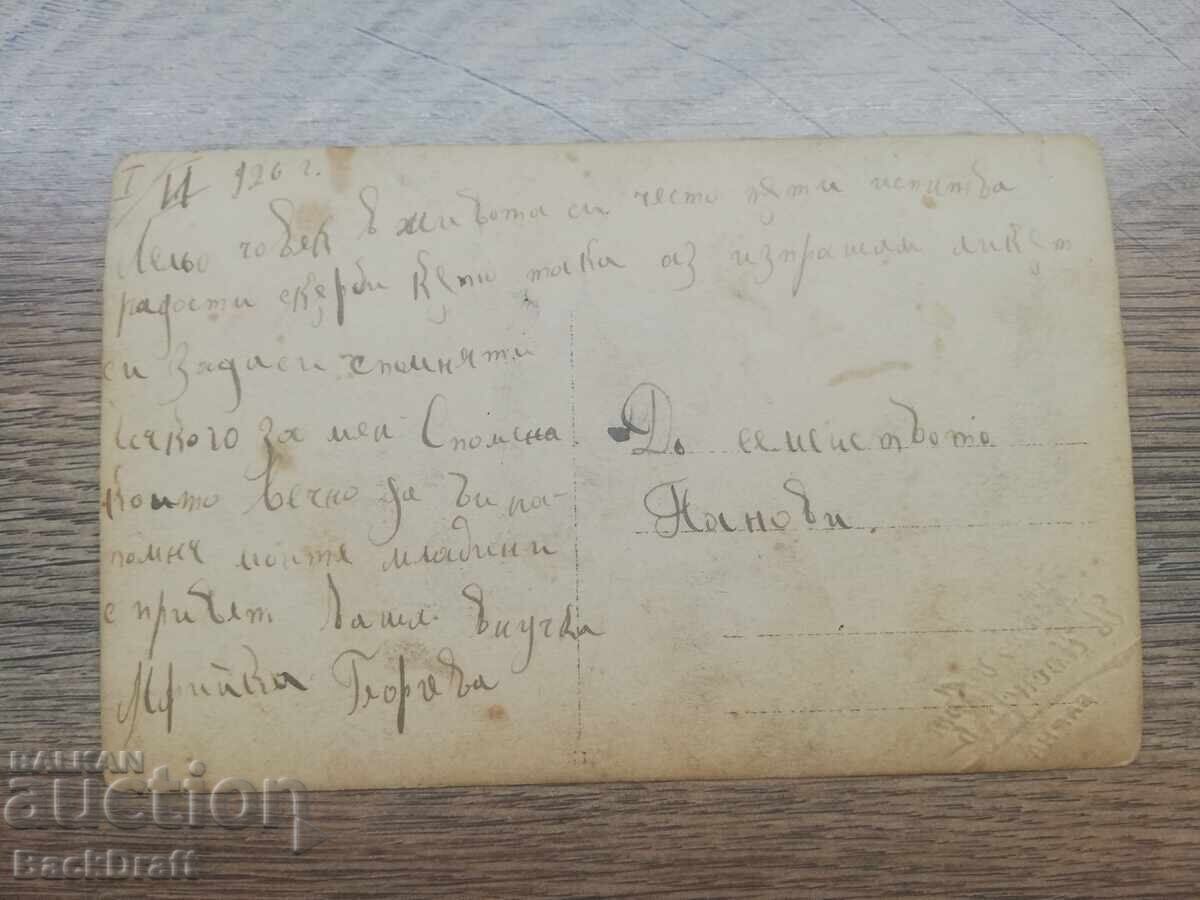 I/II 926 г.
Лельо човек в живота си често пъти испитва
радости скърби къто така аз изпрашам ликът
си за да си спомняти
всякого за мен Спомена
които вечно да ви на-
помня моите младини
с привет Ваша внучка
Марийка Георгева
До семейството
Панови.
BALKAN
auction
BackDraft